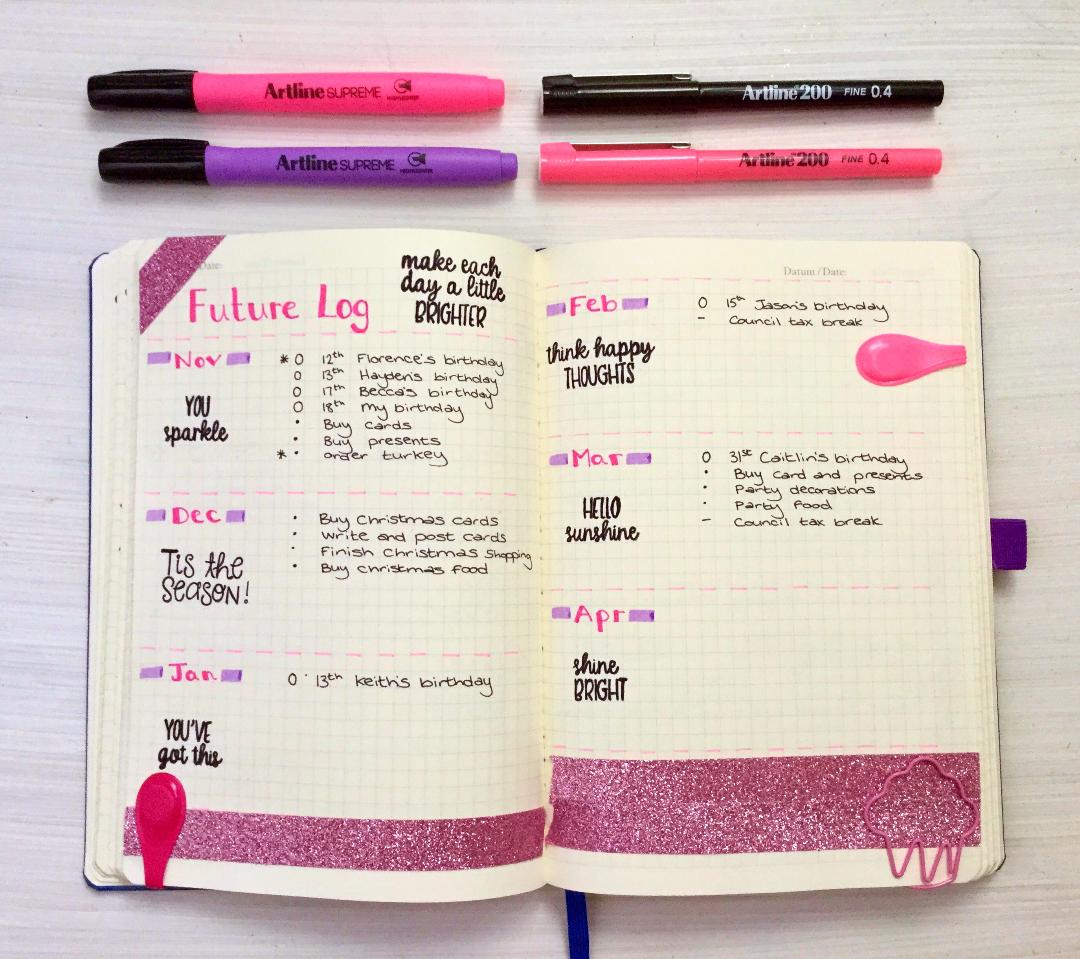 Artline SUPREME
HIGHLIGHTER
Artline 200 FINE 0.4
Artline SUPREME
HIGHLIGHTER
Artline 200 FINE 0.4
Date:
Future Log
make each
day a little
BRIGHTER
Nov
YOU
sparkle
* O 12th Florence's birthday
O 13th Hayden's birthday
O 17th Becca's birthday
O 18th My birthday
• Buy cards
• Buy presents
* • order turkey
Dec
Tis the
SEASON!
• Buy Christmas cards
• write and post cards
• Finish Christmas shopping
• Buy christmas food
Jan
YOU'VE
got this
O 13th Keith's birthday
Datum / Date:
Feb
think happy
THOUGHTS
O 15th Jason's birthday
– Council tax break
Mar
HELLO
sunshine
O 31st Caitlin's birthday
• Buy card and presents
• Party decorations
• Party food
– Council tax break
Apr
shine
BRIGHT